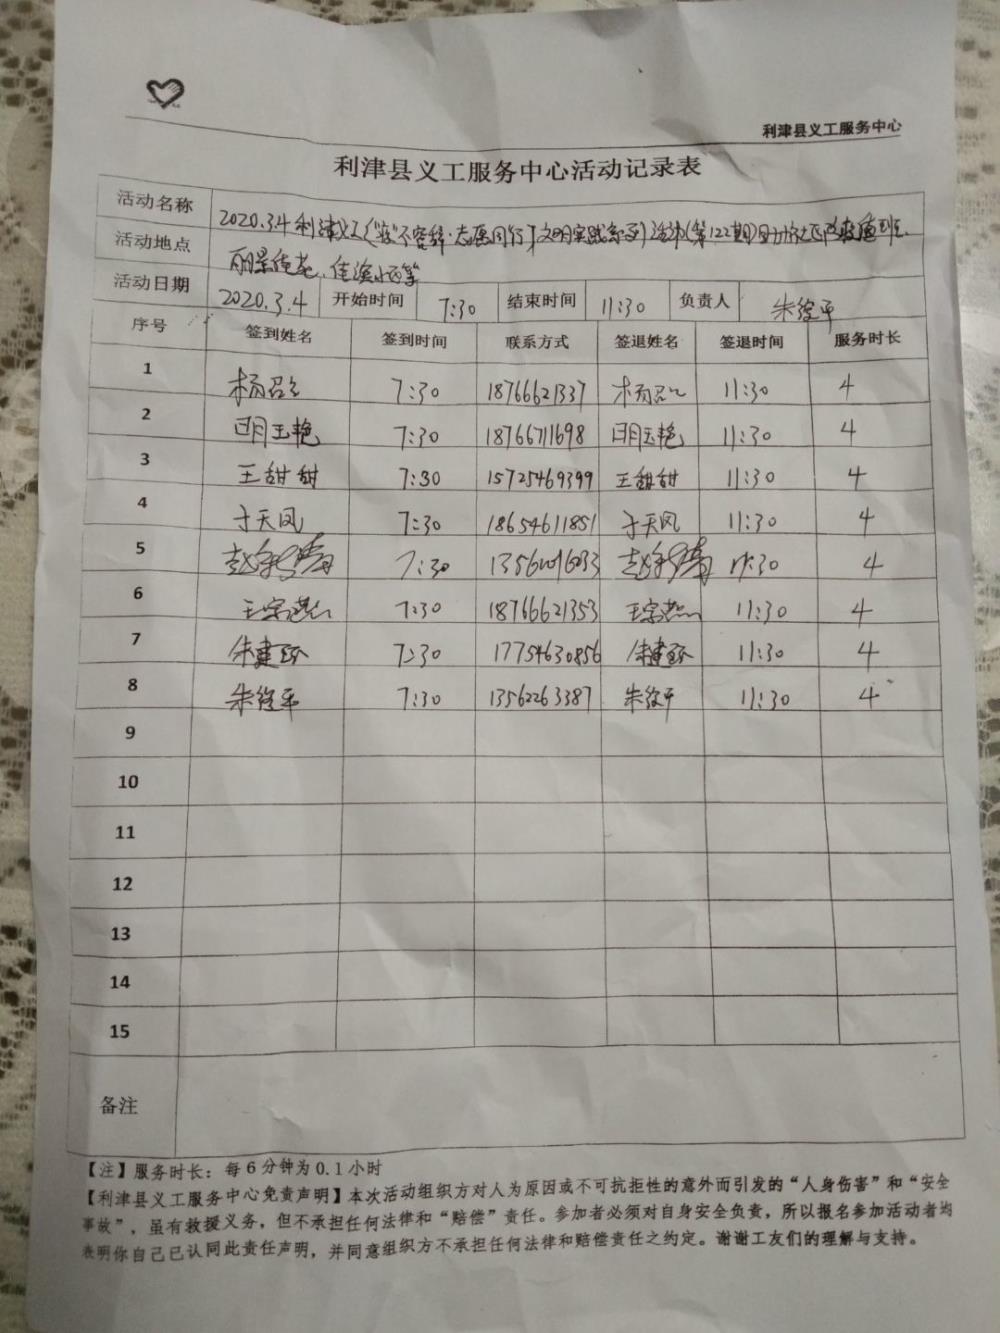 利津县义工服务中心
利津县义工服务中心活动记录表
活动名称 2020.3.4利津义工"疫"不容辞·志愿同行 文明实践系列活动(第122期)
活动地点 丽景 佳苑、佳滨小区等
活动日期 2020.3.4 开始时间 7:30 结束时间 11:30 负责人 朱 平
序号 签到姓名 签到时间 联系方式 签退姓名 签退时间 服务时长
1 杨 7:30 18766621337 杨 11:30 4
2 玉艳 7:30 18766711698 玉艳 11:30 4
3 王甜甜 7:30 15725469399 王甜甜 11:30 4
4 于天凤 7:30 18654611851 于天凤 11:30 4
5 赵 7:30 赵 11:30 4
6 王宗 7:30 18766621353 王宗 11:30 4
7 朱建 7:30 17754630856 朱建 11:30 4
8 朱 平 7:30 13562263387 朱 平 11:30 4
9
10
11
12
13
14
15
备注
【注】服务时长：每6分钟为0.1小时
【利津县义工服务中心免责声明】本次活动组织方对人为原因或不可抗拒性的意外而引发的“人身伤害”和“安全
事故”，虽有救援义务，但不承担任何法律和“赔偿”责任。参加者必须对自身安全负责，所以报名参加活动者均
表明你自己已认同此责任声明，并同意组织方不承担任何法律和赔偿责任之约定。谢谢工友们的理解与支持。